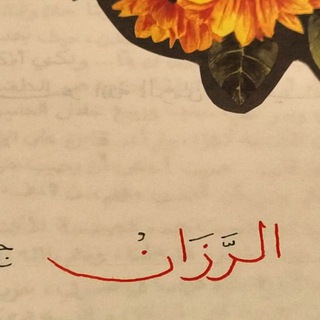 الرَّزَانْ